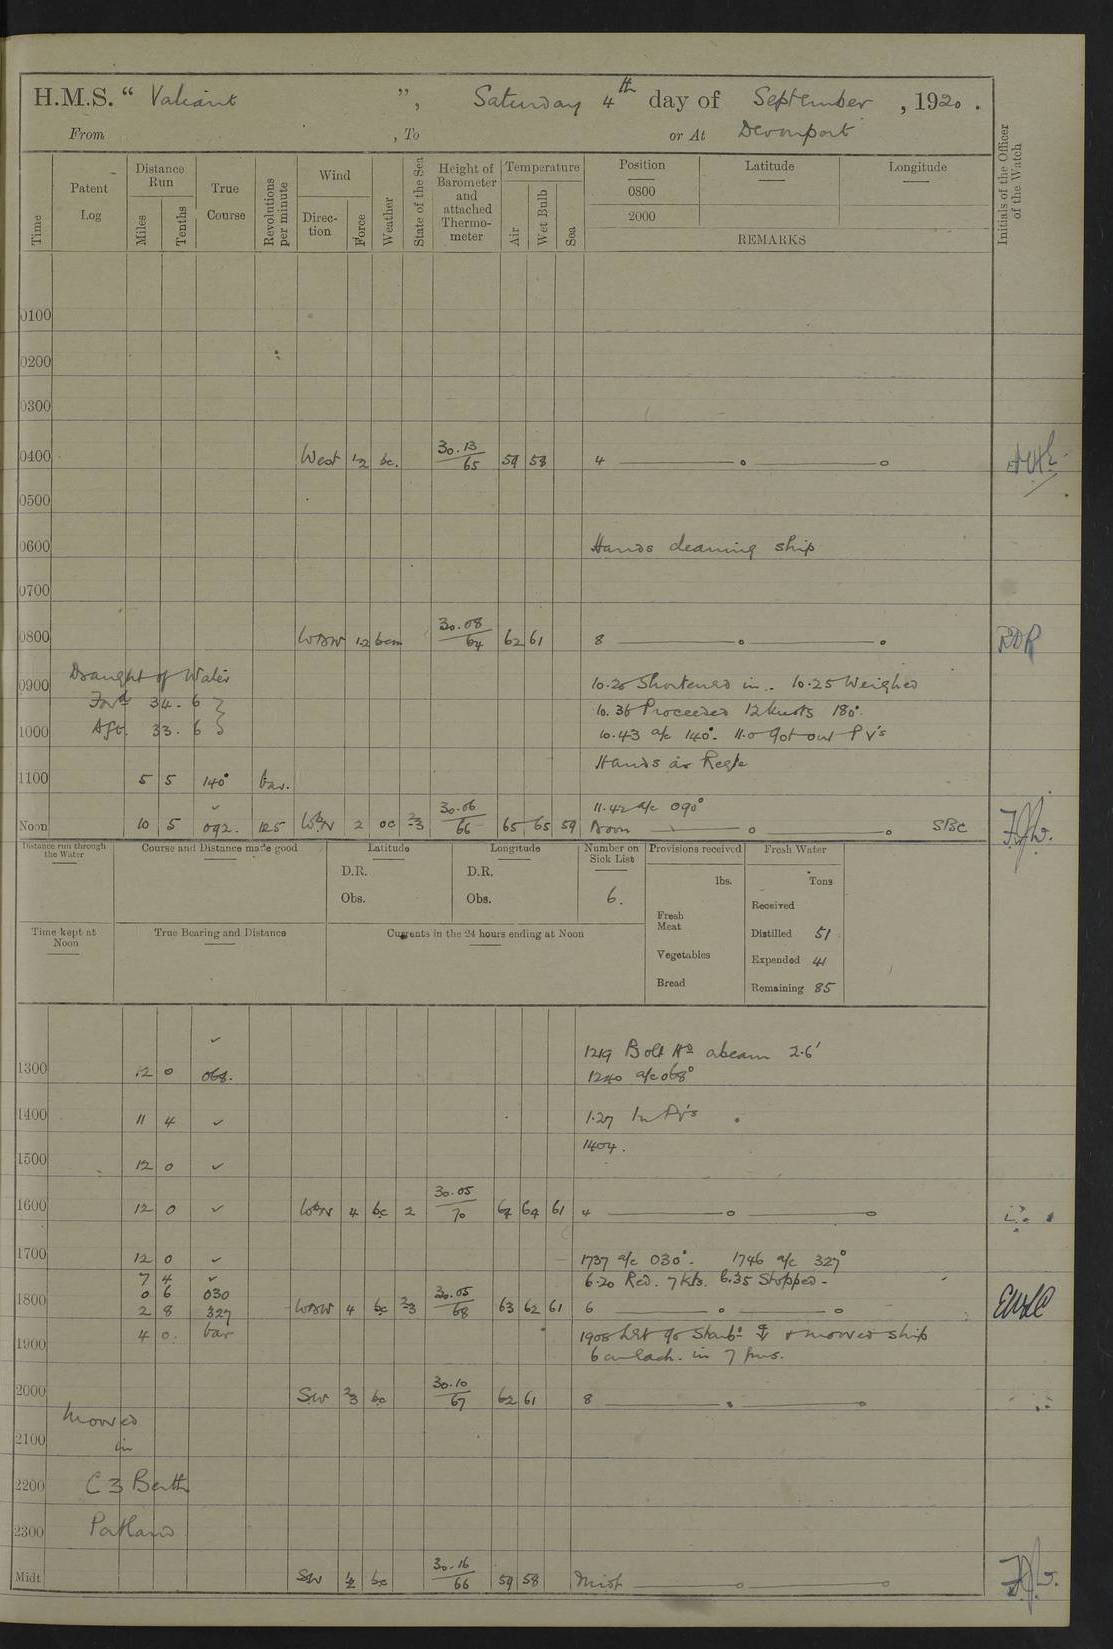 H.M.S. “ Valiant ”, Saturday 4th day of September , 1920.
From , To or At Devonport
Time
Patent Log
Distance Run
Miles
Tenths
True Course
Revolutions per minute
Wind
Direction
Force
Weather
State of the Sea
Height of Barometer and attached Thermometer
Temperature
Air
Wet Bulb
Sea
Position
0800
2000
Latitude
Longitude
REMARKS
Initials of the Officer of the Watch
0100
0200
0300
0400 West 1-2 bc. 30.13/65 59 58 4
0500
0600 Hands cleaning ship
0700
0800 WSW 1-2 bcm 30.08/64 62 61 8 RDR
Draught of Water
0900 10.20 Shortened in. 10.25 Weighed
Forwd 34. 6
10.36 Proceeded 12 knots 180°
1000 Aft. 33. 6 10.43 a/c 140°. 11.0 Got out P.V's
Hands as Reqte
1100 5 5 140° Var.
11.42 a/c 090°
Noon 10 5 092. 125 WbN 2 oc 2-3 30.06/66 65 65 59 Noon SBC
Distance run through the Water
Course and Distance made good
Latitude
D.R.
Obs.
Longitude
D.R.
Obs.
Number on Sick List
6.
Provisions received
lbs.
Fresh Meat
Vegetables
Bread
Fresh Water
Tons
Received
Distilled 51
Expended 41
Remaining 85
Time kept at Noon
True Bearing and Distance
Currents in the 24 hours ending at Noon
1219 Bolt Hd abeam 2.6'
1300 12 0 068. 1240 a/c 068°
1400 11 4 ✓ 1.27 In P.V's
1404.
1500 12 0 ✓
1600 12 0 ✓ WbN 4 bc 2 30.05/70 64 64 61 4
1700 12 0 ✓ 1737 a/c 030°. 1746 a/c 327°
7 4 ✓ 6.20 Red. 7 kts. 6.35 Stopped.
0 6 030
1800 2 8 327 WSW 4 bc 2-3 30.05/68 63 62 61 6 EWLC
4 0. Var 1905 Let go Starbd ⚓ & moored ship
1900 6 on each. in 7 fms.
2000 SW 2-3 bc 30.10/67 62 61 8
Moored
2100 in
2200 C 3 Berth
2300 Portland
Midt SW 1-2 bc 30.16/66 59 58 Midt